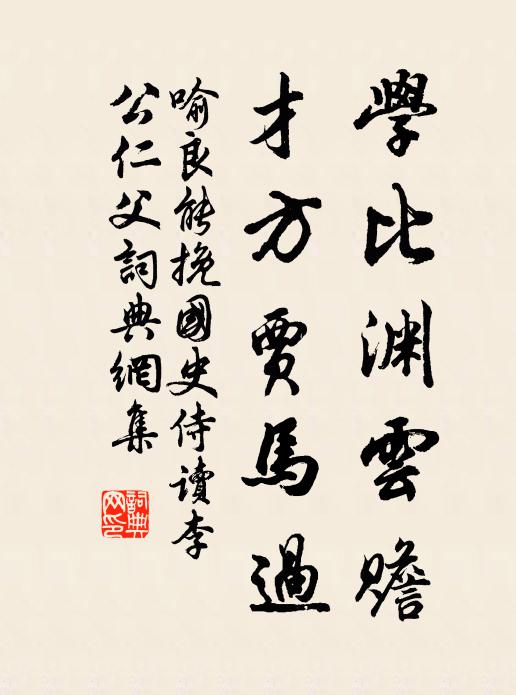 學比渊雲贍
才方賈馬過
喻良能挽國史侍讀李
公仁父詞典網集
詞典网印